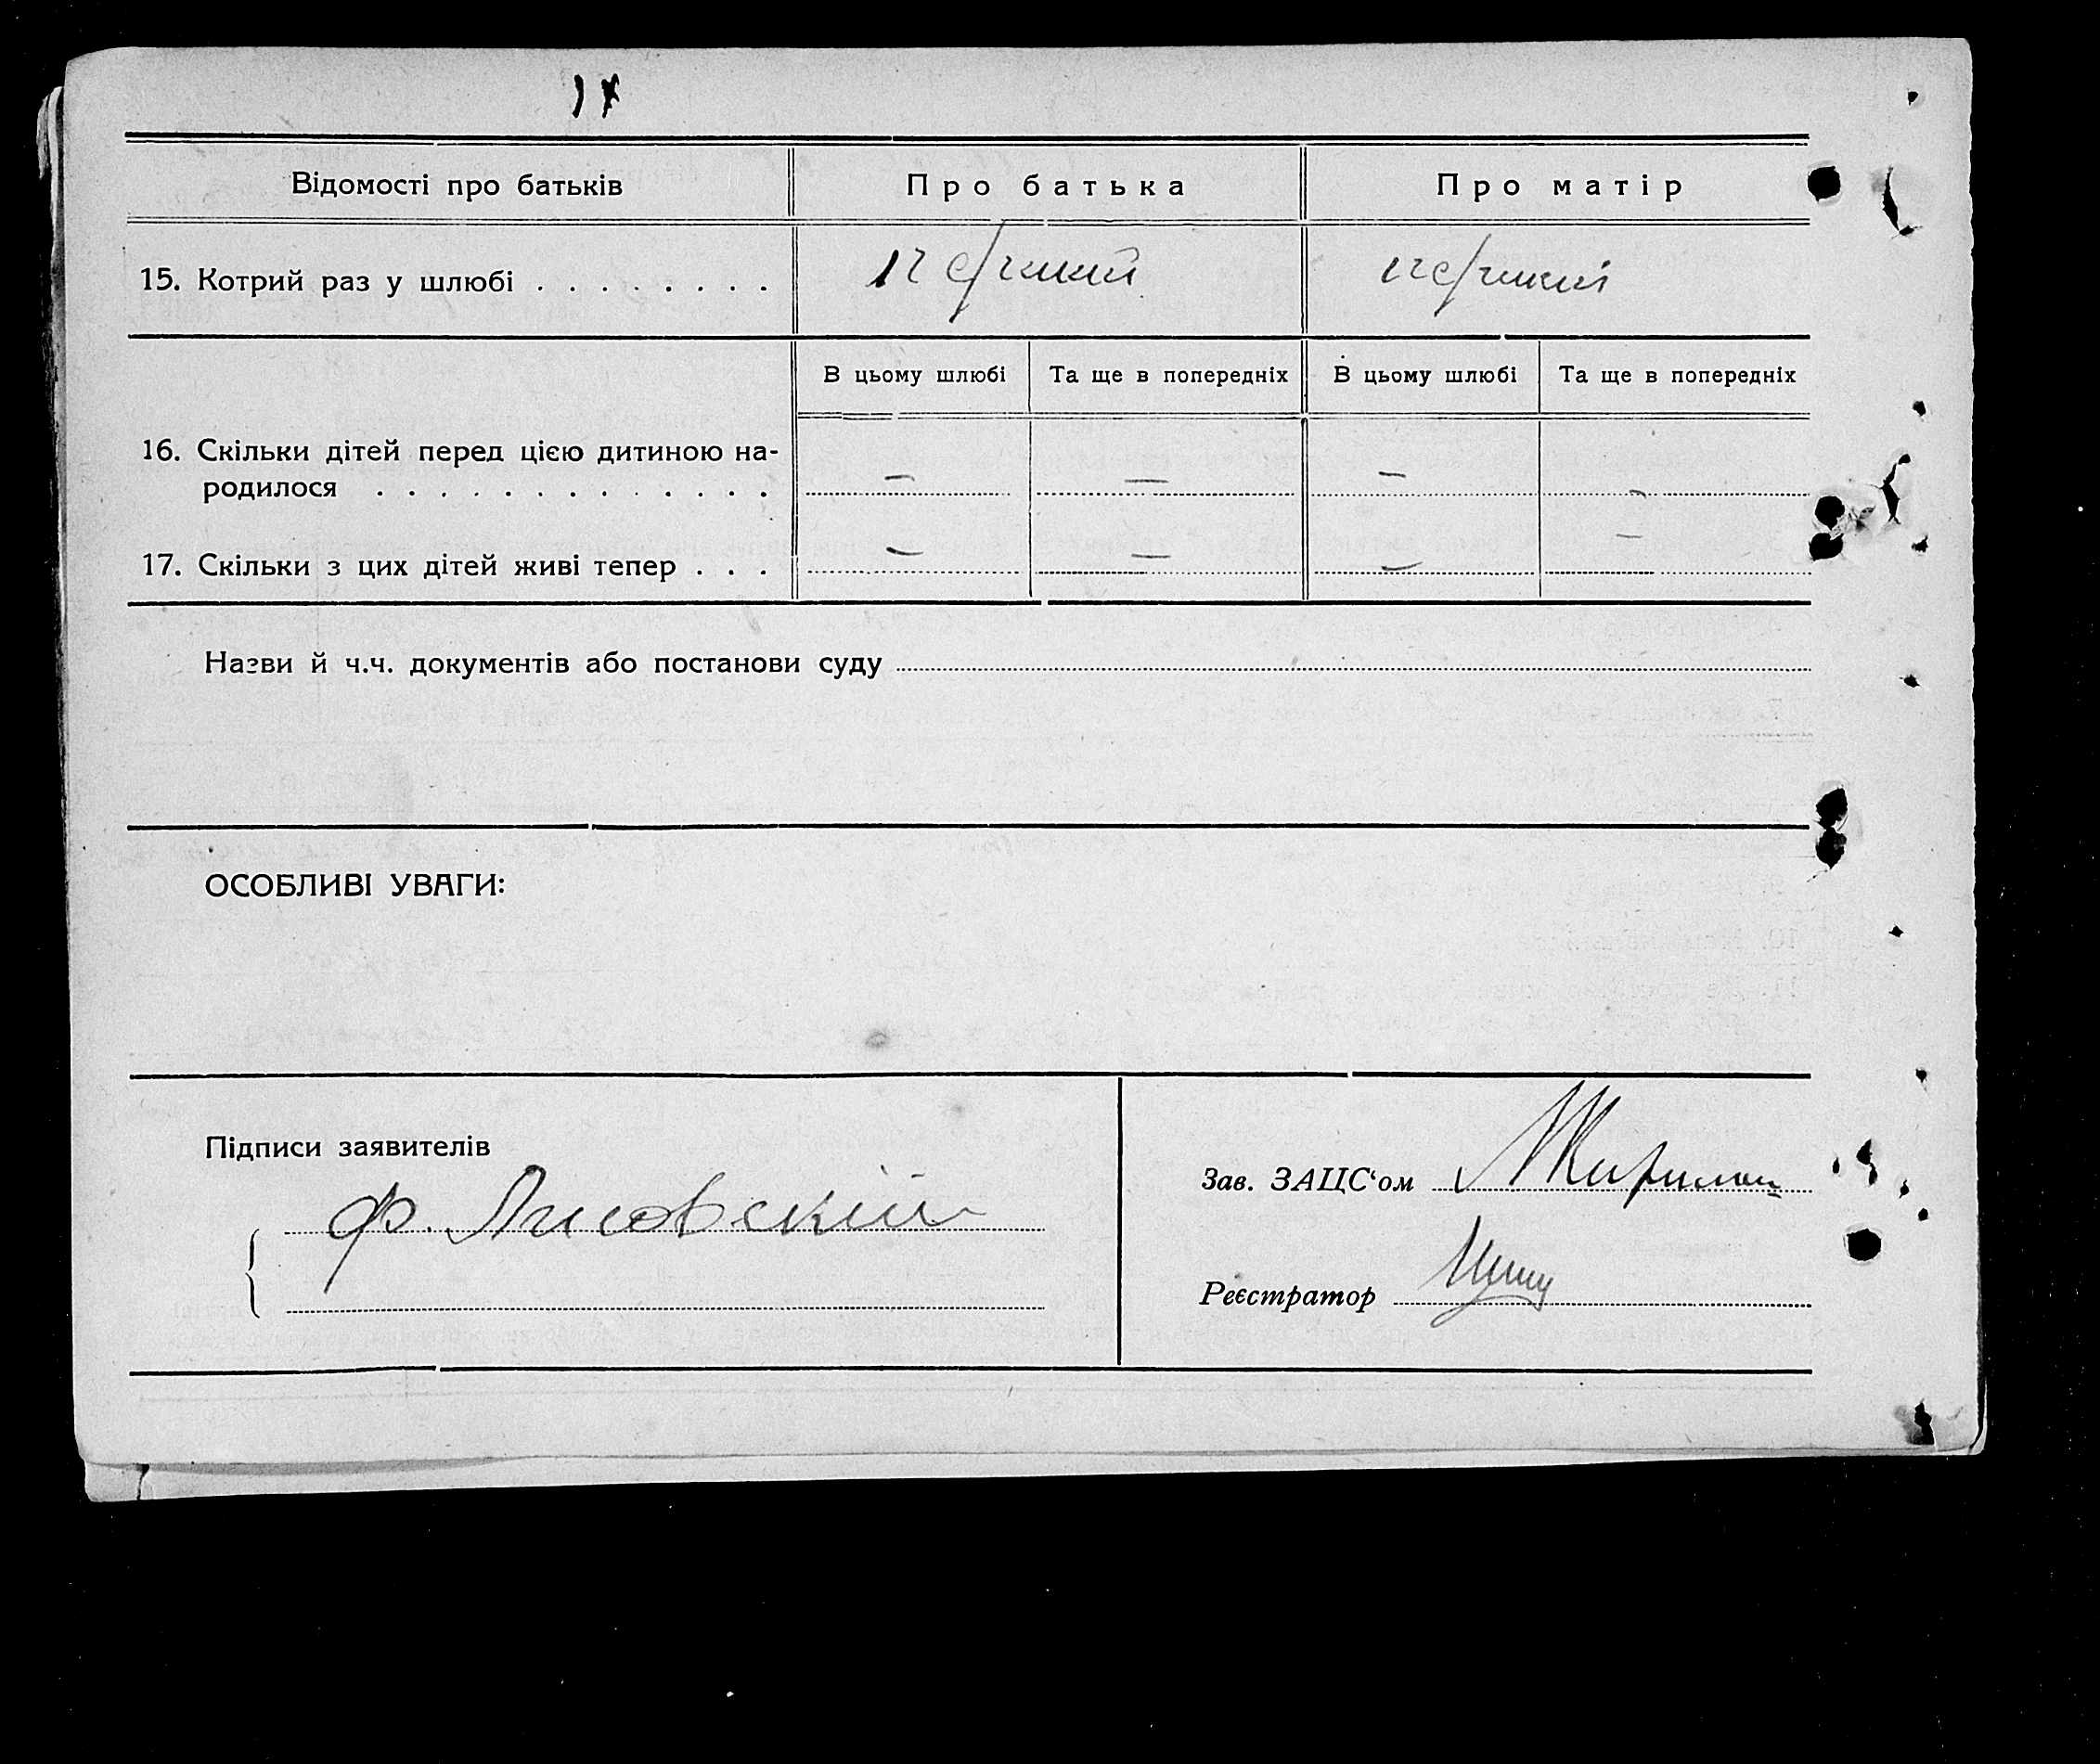 Відомості про батьків
Про батька
Про матір
15. Котрий раз у шлюбі . . . . . . . .
перший
перший
В цьому шлюбі
Та ще в попередніх
В цьому шлюбі
Та ще в попередніх
16. Скільки дітей перед цією дитиною на-
родилося . . . . . . . . . . . . . .
— — — —
17. Скільки з цих дітей живі тепер . . .
— — — —
Назви й ч.ч. документів або постанови суду
ОСОБЛИВІ УВАГИ:
Підписи заявителів
Ф. Лисовский
Зав. ЗАЦС'ом
Реєстратор